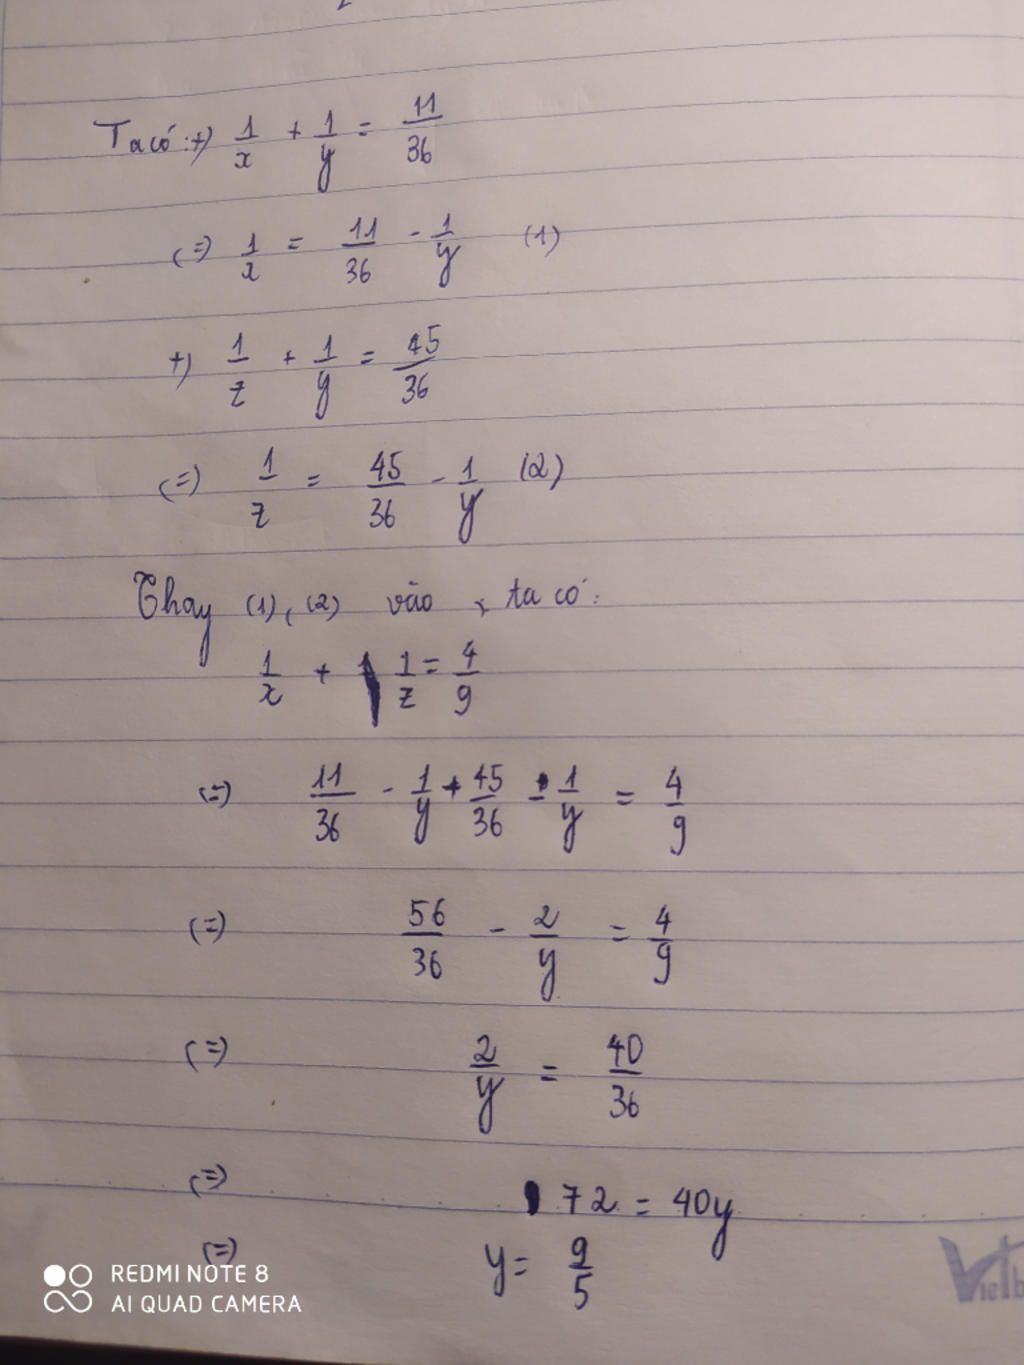 Ta có: +) 1/x + 1/y = 11/36
(=) 1/x = 11/36 - 1/y (1)
+) 1/z + 1/y = 45/36
(=) 1/z = 45/36 - 1/y (2)
Thay (1), (2) vào , ta có:
1/x + 1/z = 4/9
(=) 11/36 - 1/y + 45/36 - 1/y = 4/9
(=) 56/36 - 2/y = 4/9
(=) 2/y = 40/36
(=) 72 = 40y
(=) y = 9/5
REDMI NOTE 8
AI QUAD CAMERA